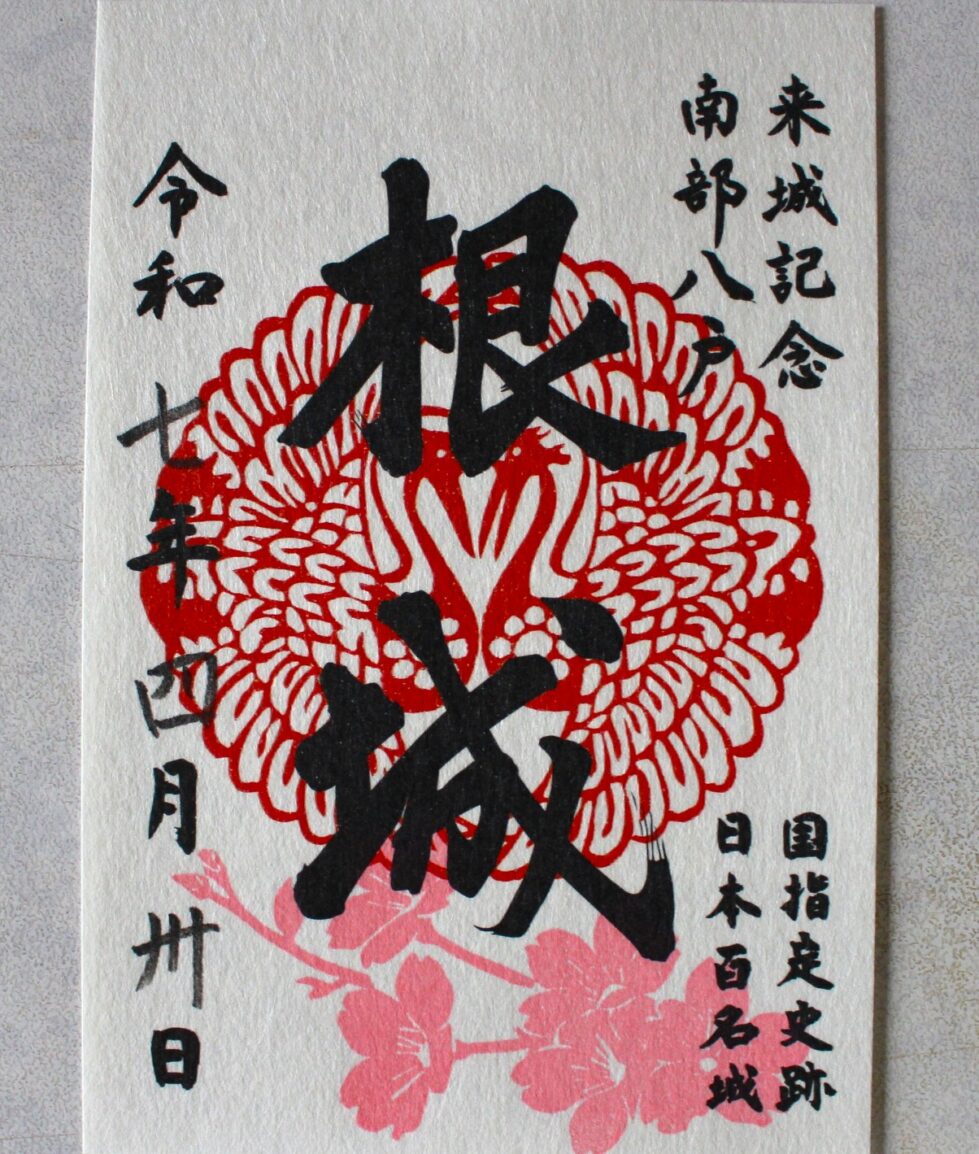 来城記念
南部八戸
国指定史跡
日本百名城
根城
令和七年四月卅日